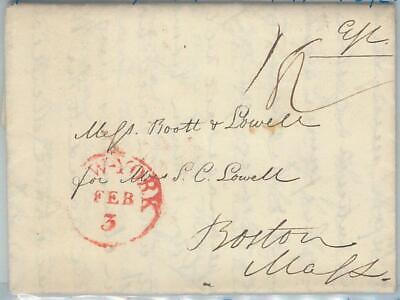 18
Messrs. Boott & Lowell
for Miss S. C. Lowell
Boston
Mass.
NEW-YORK
FEB
3